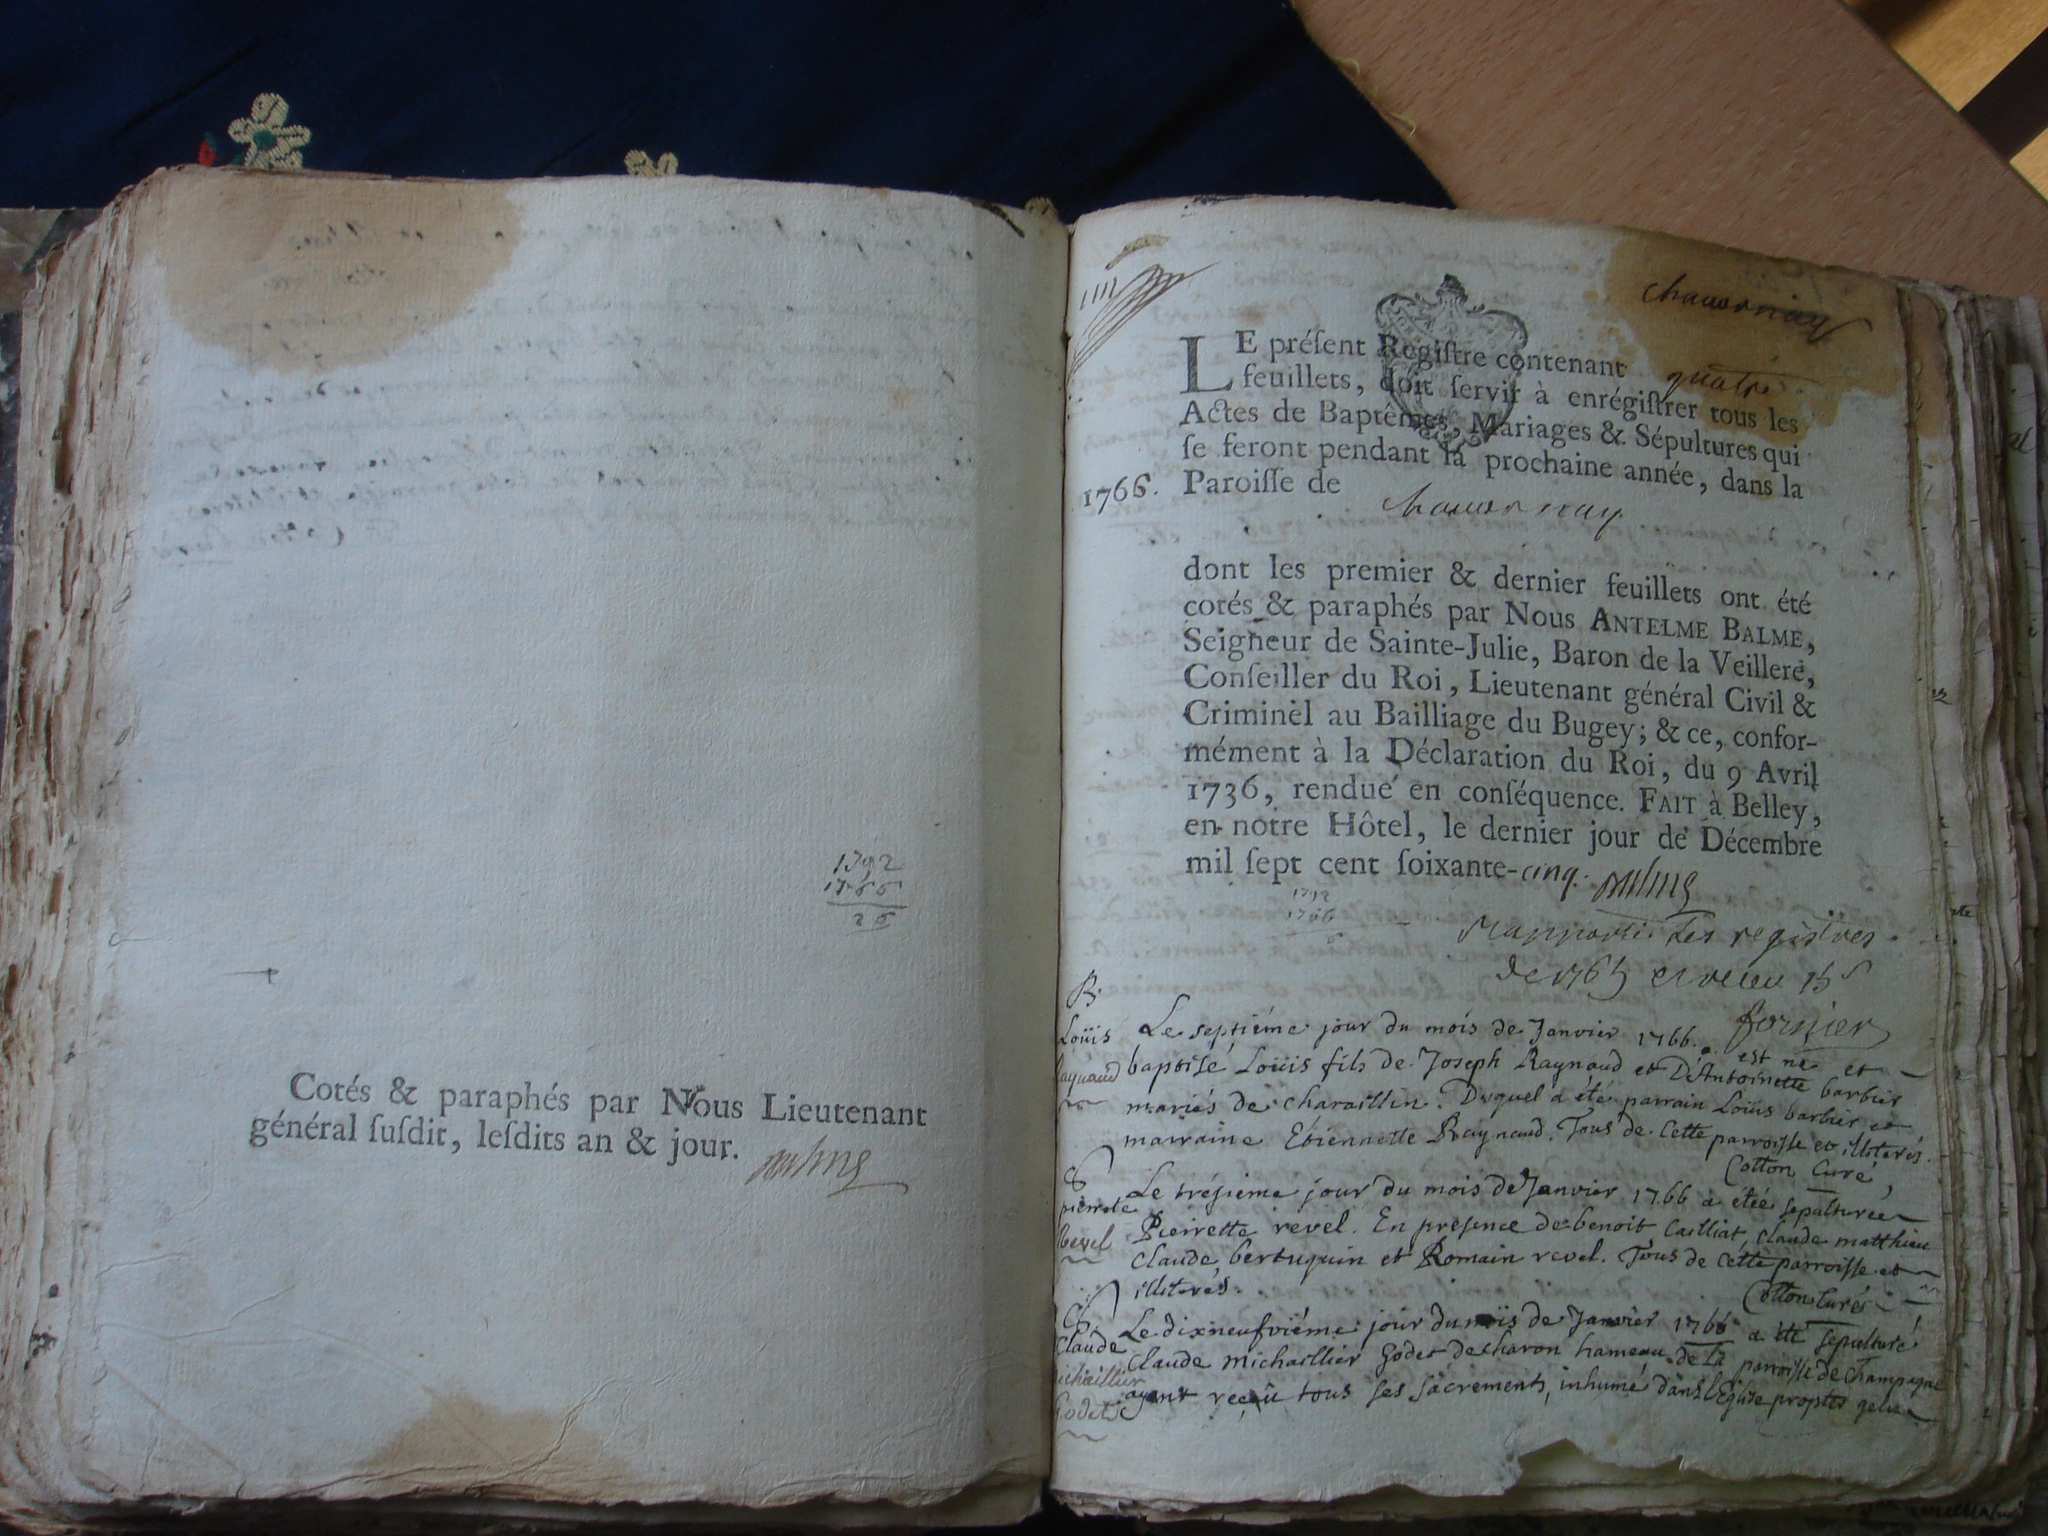 1792
1766
26
Cotés & paraphés par Nous Lieutenant
général ſuſdit, leſdits an & jour.
chavornay
LE préſent Regiſtre contenant quatre
feuillets, doit ſervir à enrégiſtrer tous les
Actes de Baptêmes, Mariages & Sépultures qui
ſe feront pendant la prochaine année, dans la
1766. Paroiſſe de
chavornay
dont les premier & dernier feuillets ont été
cotés & paraphés par Nous ANTELME BALME,
Seigneur de Sainte-Julie, Baron de la Veillere,
Conſeiller du Roi, Lieutenant général Civil &
Criminel au Bailliage du Bugey; & ce, confor-
mément à la Déclaration du Roi, du 9 Avril
1736, rendue en conſéquence. FAIT à Belley,
en notre Hôtel, le dernier jour de Décembre
mil ſept cent ſoixante-cinq.
1792
1766
6
Rapporté les registres
de 1765 et receu 15ˢ
fornier
B.
Loüis
raynaud
Le septiéme jour du mois de Janvier 1766. est né et
baptisé Loüis fils de Joseph Raynaud et D'Antoinette barbier
mariés de charaillin. Duquel a été parrain Loüis barbier et
marraine Etiennette Raynaud. Tous de cette parroisse et illiterés.
Cotton Curé
S
pierrete
revel
Le trésieme jour du mois de Janvier 1766 a étée sepalturée
Pierrette revel. En presence de benoit Cailliat, claude matthieu
Claude, bertuquin et Romain revel. Tous de cette parroisse et
illiterés.
Cotton Curé
S.
Claude
ichaillier
Godet
Le dixneufviéme jour du mois de Janvier 1766 a été sepulturé
Claude Michaillier Godet de charon hameau de la parroisse de Champagne
ayant reçeu tous ses sacrements, inhumé dans l'Eglise